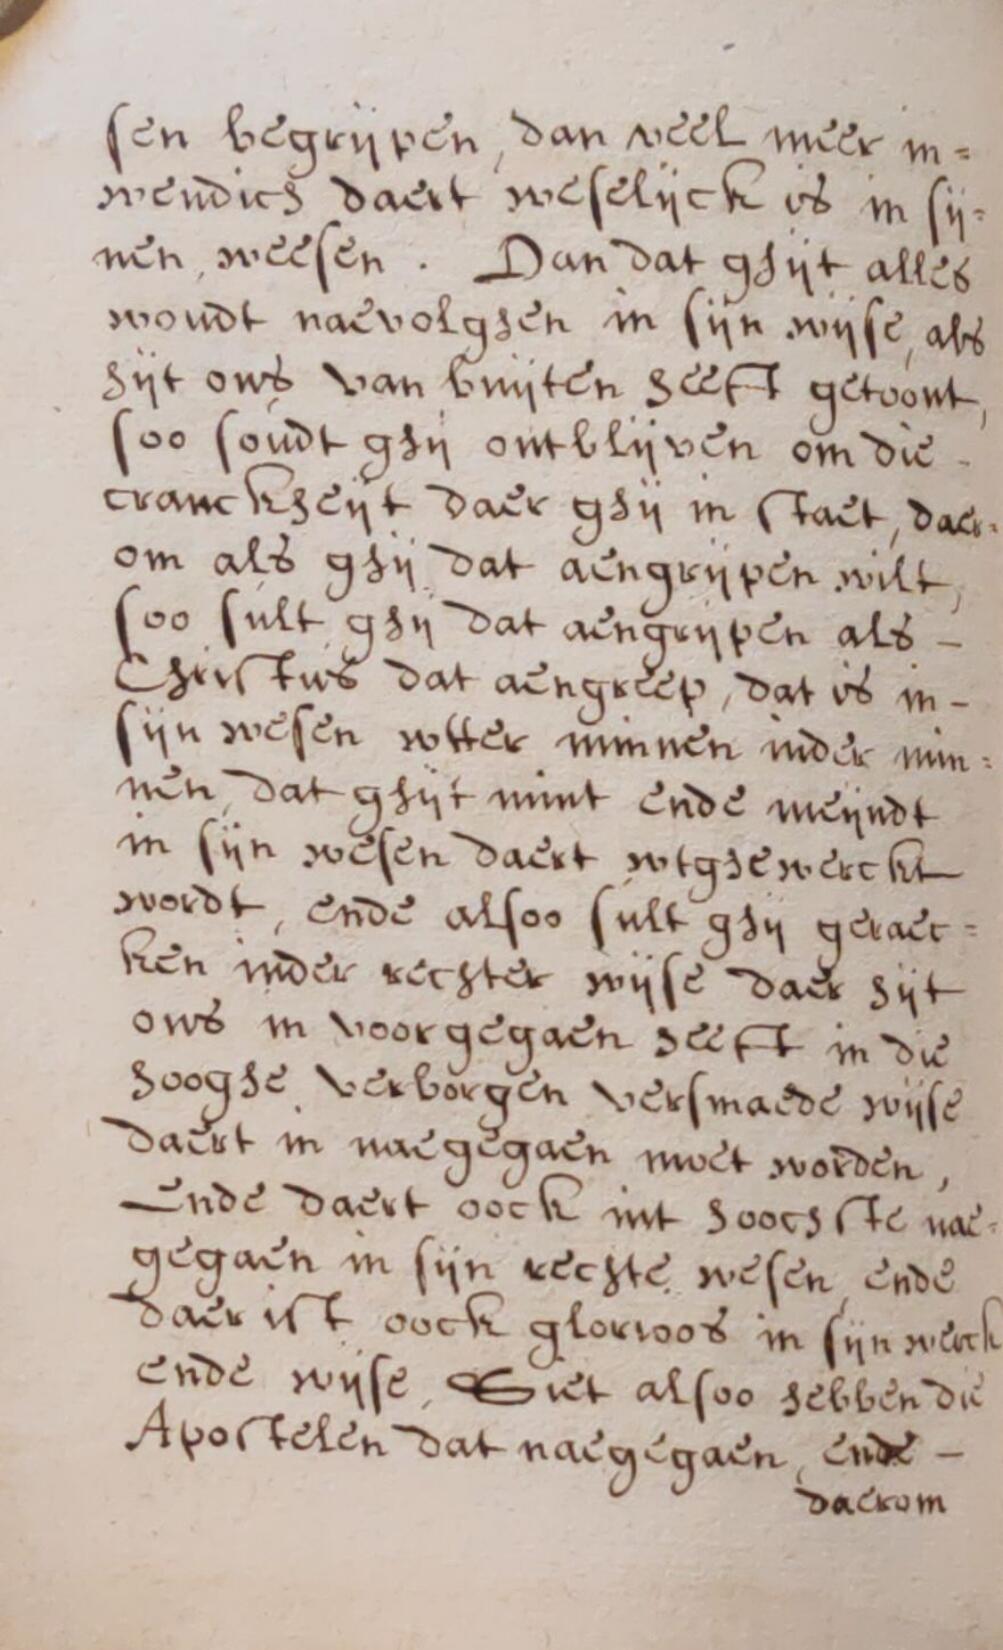 sen begrijpen, dan veel meer in=
wendich daert weselijck is in sij=
nen, weesen. Dan dat ghijt alles
woudt naevolghen in sijn wijse, als
hijt ons van buijten heeft getoont,
soo soudt ghij ontblijven om die -
cranckheijt daer ghij in staet, daer=
om als ghij dat aengrijpen wilt,
soo sult ghij dat aengrijpen als -
Christus dat aengreep, dat is in -
sijn wesen wtter minnen inder min=
nen, dat ghijt mint ende meijndt
in sijn wesen daert wtghewerckt
wordt, ende alsoo sult ghij geraec=
ken inder rechter wijse daer hijt
ons in voorgegaen heeft in die
hooghe verborgen versmaede wijse
daert in naegegaen moet worden,
Ende daert oock int hoochste nae=
gegaen in sijn rechte wesen, ende
daer ist oock glorioos in sijn werck
ende wijse, Siet alsoo hebben die
Apostelen dat naegegaen, ende -
daerom